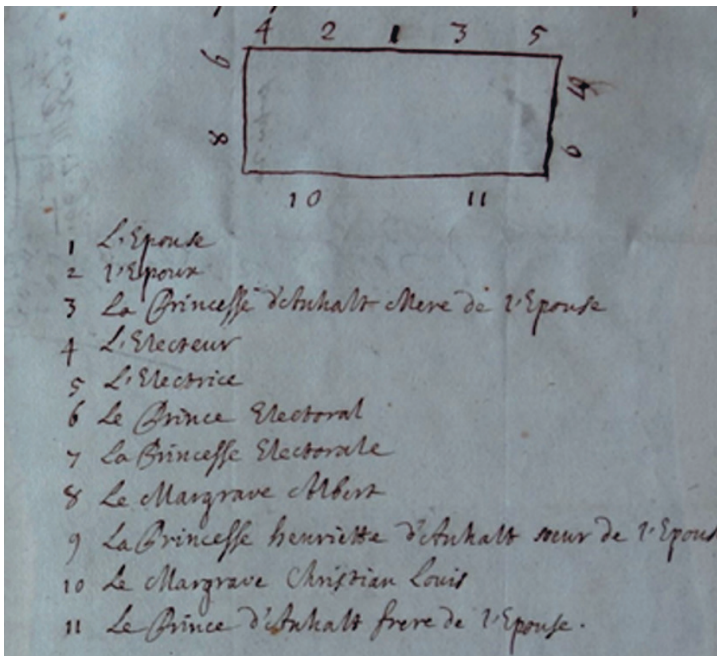 4 2 1 3 5
6
8
9
10 11
1 L'Epouse
2 l'Epoux
3 La Princesse d'Anhalt Mere de l'Epouse
4 L'Electeur
5 L'Electrice
6 Le Prince Electoral
7 La Princesse Electorale
8 Le Margrave Albert
9 La Princesse henriette d'Anhalt sœur de l'Epous
10 Le Margrave Christian Louis
11 Le Prince d'Anhalt frere de l'Epouse.